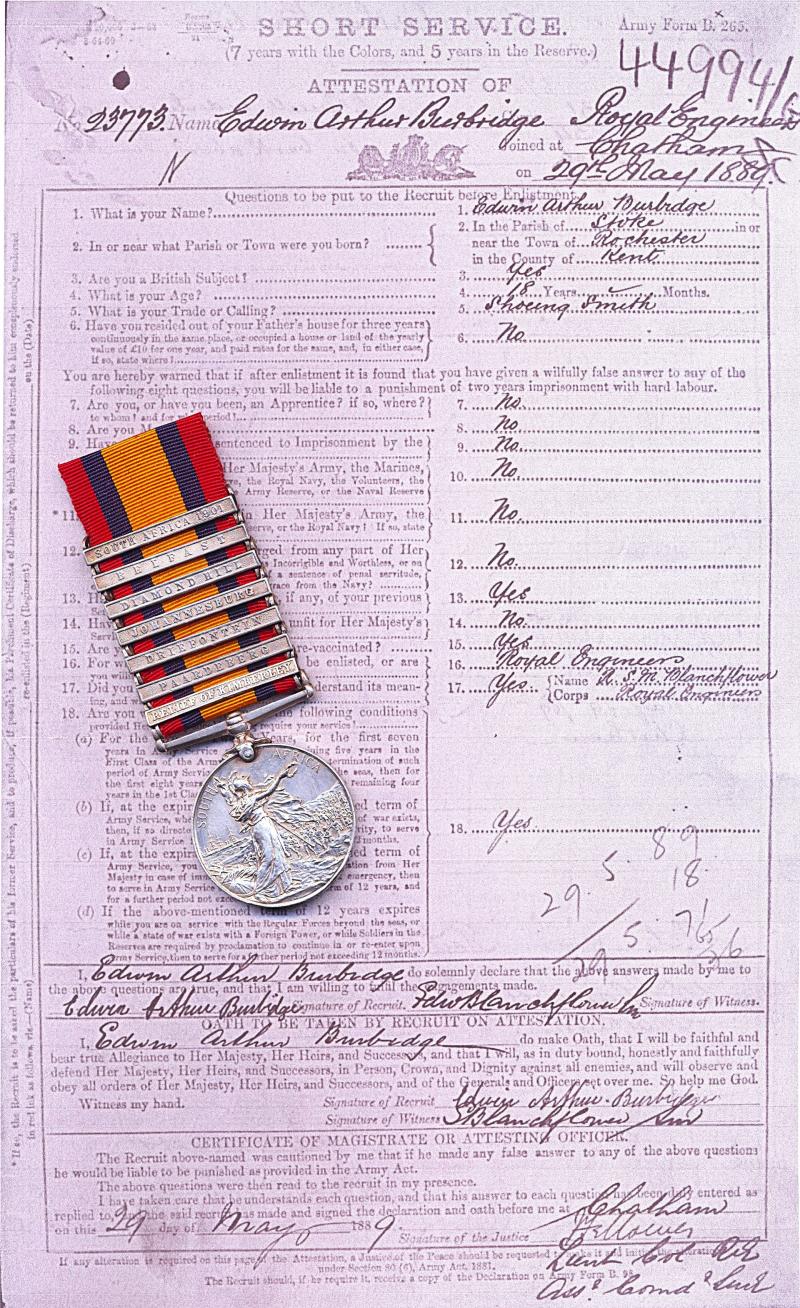 SHORT SERVICE.
Army Form B. 265.
(7 years with the Colors, and 5 years in the Reserve.)
44994/
ATTESTATION OF
No. 23773. Name Edwin Arthur Burbridge Royal Engineers
Joined at Chatham
on 29th May 1889.
N
Questions to be put to the Recruit before Enlistment.
1. What is your Name? 1. Edwin Arthur Burbidge
2. In or near what Parish or Town were you born? 2. In the Parish of Stoke in or
near the Town of Rochester
in the County of Kent
3. Are you a British Subject? 3. Yes
4. What is your Age? 4. 18 Years Months.
5. What is your Trade or Calling? 5. Shoeing Smith
6. Have you resided out of your Father's house for three years
continuously in the same place, or occupied a house or land of the yearly
value of £10 for one year, and paid rates for the same, and, in either case,
if so, state where? 6. No
You are hereby warned that if after enlistment it is found that you have given a wilfully false answer to any of the
following eight questions, you will be liable to a punishment of two years imprisonment with hard labour.
7. Are you, or have you been, an Apprentice? if so, where? 7. No.
to whom? and for period?
8. Are you M 8. No
9. Have sentenced to Imprisonment by the 9. No.
Her Majesty's Army, the Marines,
the Royal Navy, the Volunteers, the
Army Reserve, or the Naval Reserve 10. No.
*11. in Her Majesty's Army, the
or the Royal Navy? If so, state 11. No.
12. ged from any part of Her
Incorrigible and Worthless, or on
a sentence of penal servitude,
from the Navy? 12. No.
13. H if any, of your previous 13. Yes
14. Hav unfit for Her Majesty's
Serv 14. No.
15. Are re-vaccinated? 15. Yes
16. For w be enlisted, or are
you 16. Royal Engineers
17. Did you derstand its mean-
ing, and 17. Yes Name Blanchflower
Corps Royal Engineers
18. Are you following conditions
provided H require your service?
(a) Years, for the first seven
years in Army Service ining five years in the
First Class of the Arm termination of such
period of Army Servic the seas, then for
the first eight years remaining four
years in the 1st Cla
(b) If, at the expir d term of
Army Service, wh of war exists,
then, if so directe ity, to serve
in Army Service months.
18. Yes.
(c) If, at the expira d term of
Army Service, you ation from Her
Majesty in case of imm emergency, then
to serve in Army Service rm of 12 years, and
for a further period not exc
(d) If the above-mentioned term of 12 years expires
while you are on service with the Regular Forces beyond the seas, or
while a state of war exists with a Foreign Power, or while Soldiers in the
Reserves are required by proclamation to continue in or re-enter upon
Army Service, then to serve for a further period not exceeding 12 months.
29 5 89
18
5 71
SOUTH AFRICA 1901
BELFAST
DIAMOND HILL
JOHANNESBURG
DRIEFONTEIN
PAARDEBERG
RELIEF OF KIMBERLEY
SOUTH AFRICA
I, Edwin Arthur Burbridge do solemnly declare that the above answers made by me to
the above questions are true, and that I am willing to fulfil the engagements made.
Edwin Arthur Burbidge Signature of Recruit. Blanchflower Signature of Witness.
OATH TO BE TAKEN BY RECRUIT ON ATTESTATION.
I, Edwin Arthur Burbridge do make Oath, that I will be faithful and
bear true Allegiance to Her Majesty, Her Heirs, and Successors, and that I will, as in duty bound, honestly and faithfully
defend Her Majesty, Her Heirs, and Successors, in Person, Crown, and Dignity against all enemies, and will observe and
obey all orders of Her Majesty, Her Heirs, and Successors, and of the Generals and Officers set over me. So help me God.
Witness my hand. Signature of Recruit Edwin Arthur Burbidge
Signature of Witness Blanchflower
CERTIFICATE OF MAGISTRATE OR ATTESTING OFFICER.
The Recruit above-named was cautioned by me that if he made any false answer to any of the above questions
he would be liable to be punished as provided in the Army Act.
The above questions were then read to the recruit in my presence.
I have taken care that he understands each question, and that his answer to each question has been duly entered as
replied to, and the said recruit has made and signed the declaration and oath before me at Chatham
on this 29 day of May 1889 Signature of the Justice
Lieut Col RE
If any alteration is required on this page of the Attestation, a Justice of the Peace should be requested to make it and initial the alteration
under Section 80 (6), Army Act, 1881.
The Recruit should, if he require it, receive a copy of the Declaration on Army Form B.
* If so, the Recruit is to be asked the particulars of his former Service, and to produce, if possible, his Parchment Certificate of Discharge, which should be returned to him conspicuously endorsed
in red ink as follows, viz.—(Name) re-enlisted in the (Regiment) on the (Date)